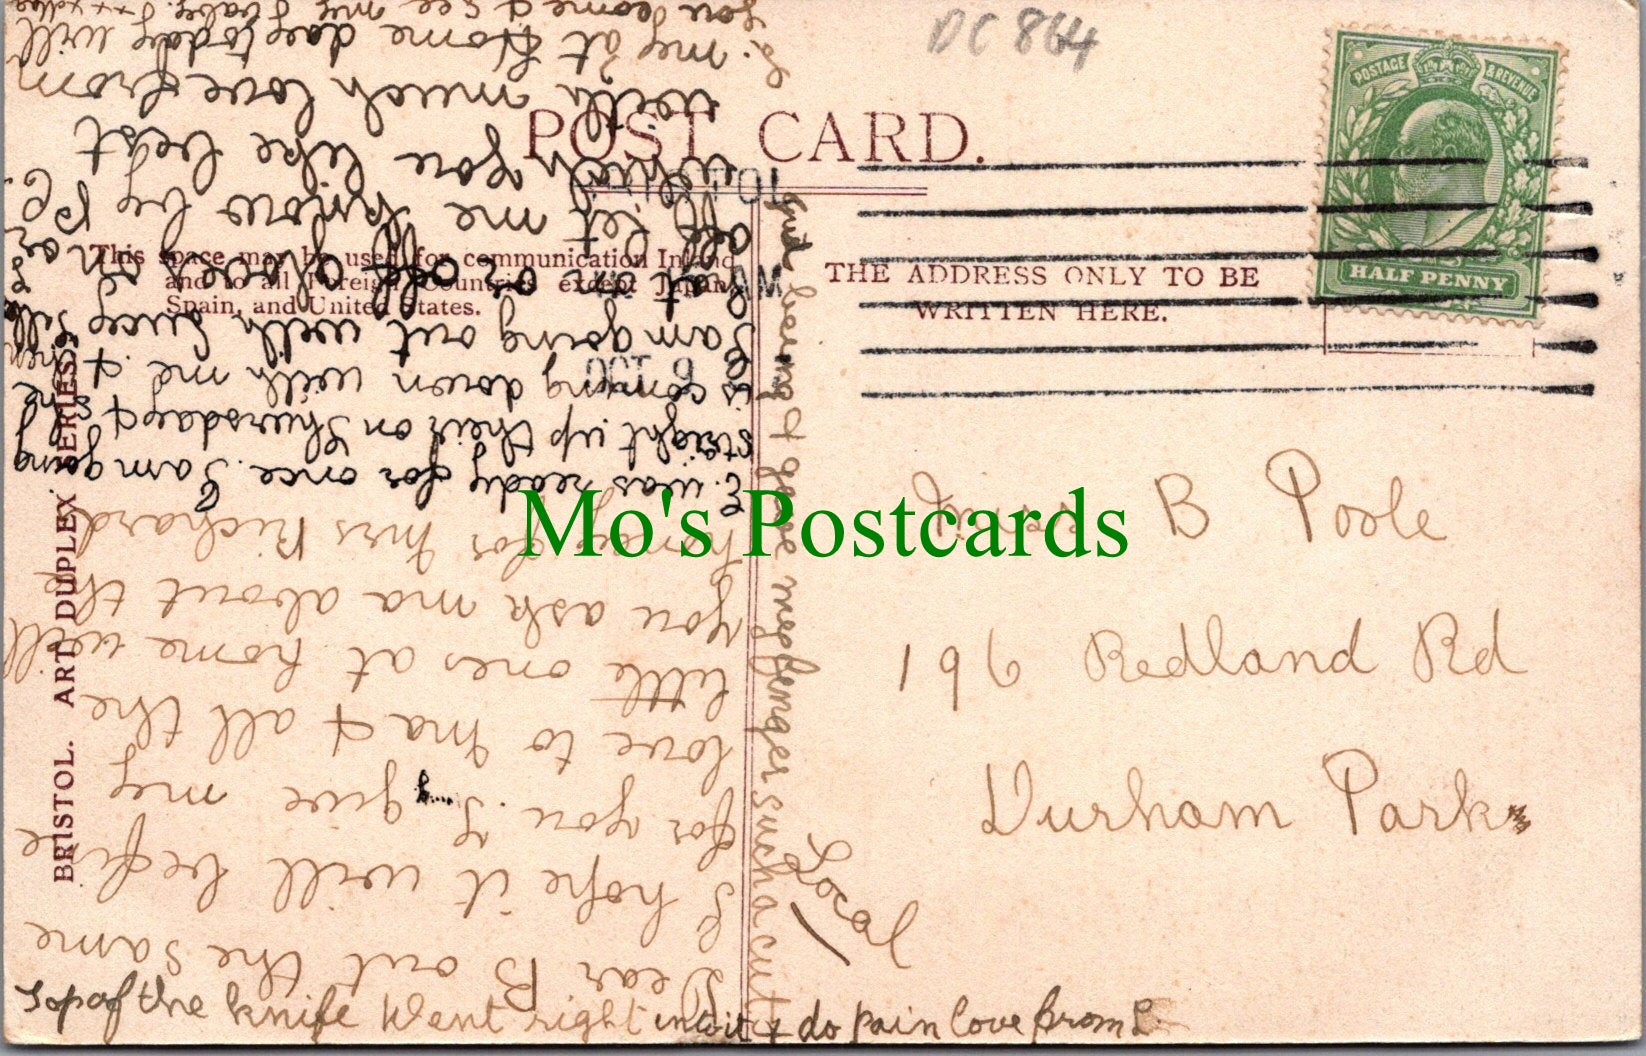 DC 864
POST CARD.
POSTAGE & REVENUE
HALF PENNY
This space may be used for communication Inland
and to all Foreign Countries except Japan,
Spain, and United States.
THE ADDRESS ONLY TO BE
WRITTEN HERE.
BRISTOL. ART DUPLEX SERIES
OCT 6
AM
Mo's Postcards
Miss B Poole
196 Redland Rd
Durham Park
Local
Dear B out the same
I hope it will befine
for you. I give my
love to Ma & all the
little ones at home will
you ask ma about the
money for Mrs Richard
E. was ready for once. I am going
straight up their on Thursday & if she
is coming down with me &
I am going out with Lucy
but one or off gloves on or
off let me know by P.C.
which you like best
with much love from
my at Home day today will
you come & see my baby.
and being & gave my finger such a cut
Top of the knife went right into it & do pain love from L